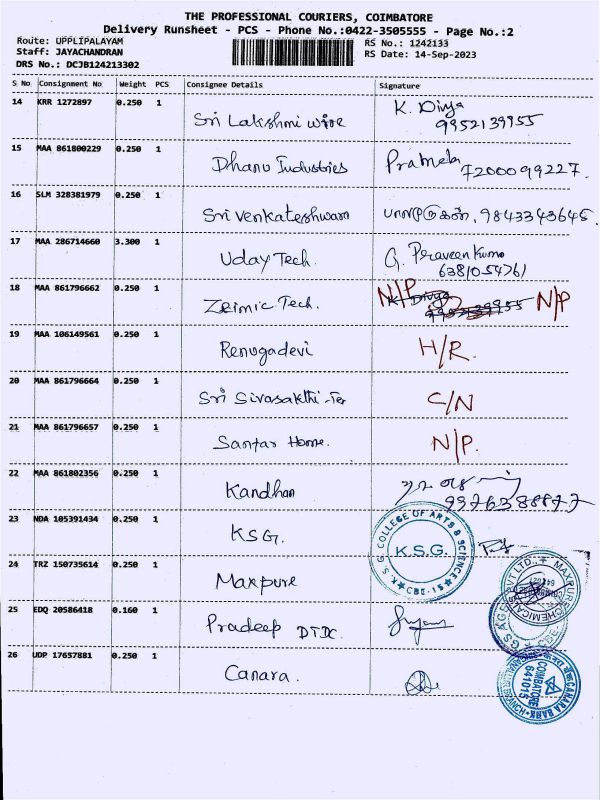 THE PROFESSIONAL COURIERS, COIMBATORE
Delivery Runsheet - PCS - Phone No.:0422-3505555 - Page No.:2
Route: UPPLIPALAYAM
RS No.: 1242133
Staff: JAYACHANDRAN
RS Date: 14-Sep-2023
DRS No.: DCJB124213302
S No Consignment No Weight PCS Consignee Details Signature
14 KRR 1272897 0.250 1 Sri Lakshmi wire K. Divya
9952139955
15 MAA 861800229 0.250 1 Dhanu Industries Pramela 7200099227.
16 SLM 328381979 0.250 1 Sri Venkateshwara பாலமுருகன், 9843343645.
17 MAA 286714660 3.300 1 Uday Tech. G. Praveen Kumar
6381054761
18 MAA 861796662 0.250 1 Zeimic Tech. N/P K Divya N/P
9952139955
19 MAA 106149561 0.250 1 Renugadevi H/R.
20 MAA 861796664 0.250 1 Sri Sivasakthi -Tex C/N
21 MAA 861796657 0.250 1 Santar Home. N/P.
22 MAA 861802356 0.250 1 Kandhan
9376388877
23 NDA 105391434 0.250 1 KSG.
K.S.G. COLLEGE OF ARTS & SCIENCE
K.S.G.
CBE-15
24 TRZ 150735614 0.250 1 Maxpure
MAXPURE CHEMICALS
25 EDQ 20586418 0.160 1 Pradeep DTDC.
26 UDP 17657881 0.250 1 Canara.
CANARA BANK
COIMBATORE
641015